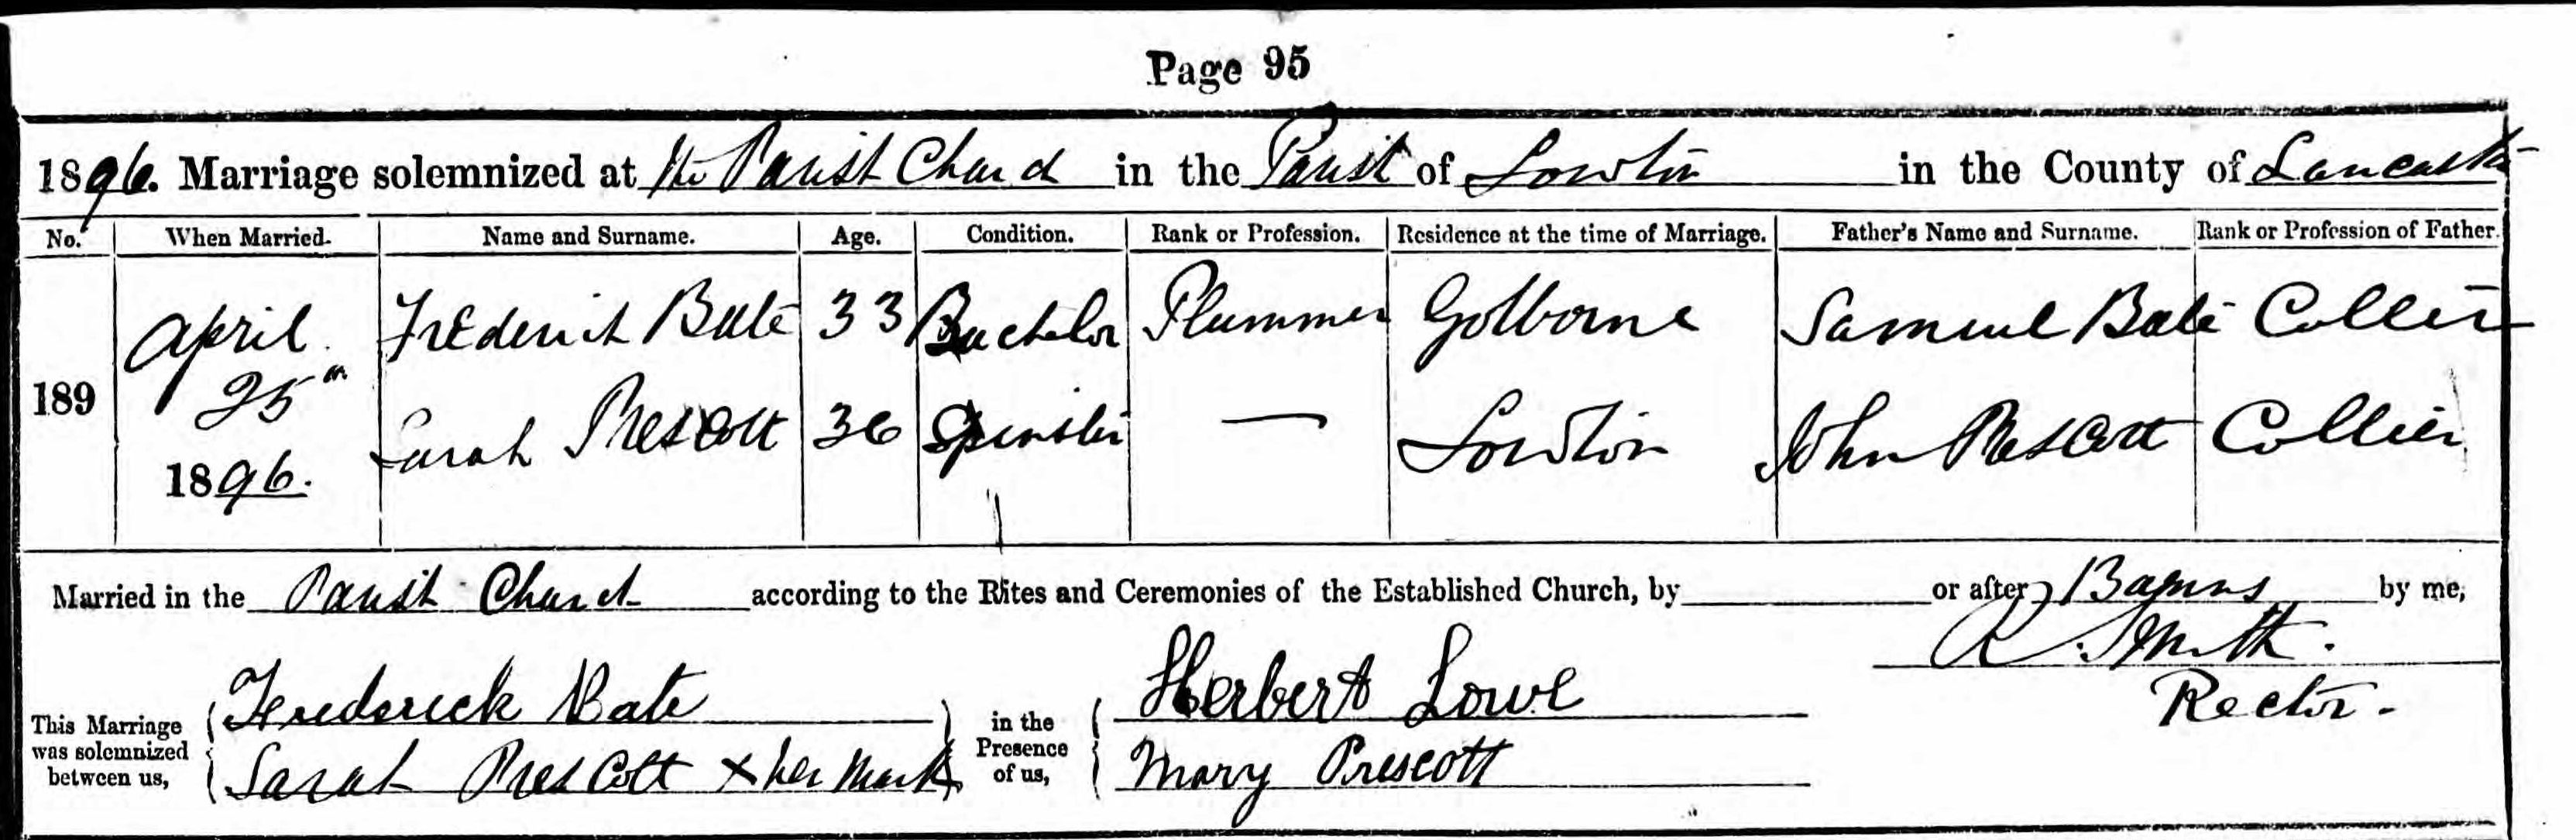 Page 95
1896. Marriage solemnized at the Parish Church in the Parish of Lowton in the County of Lancaster
No. When Married. Name and Surname. Age. Condition. Rank or Profession. Residence at the time of Marriage. Father's Name and Surname. Rank or Profession of Father.
April Frederick Bate 33 Bachelor Plummer Golborne Samuel Bate Collier
189 25th Sarah Prescott 36 Spinster — Lowton John Prescott Collier
1896.
Married in the Parish Church according to the Rites and Ceremonies of the Established Church, by or after Banns by me,
R. Smith.
Rector.
This Marriage was solemnized between us, Frederick Bate in the Presence of us, Herbert Lowe
Sarah Prescott x her mark Mary Prescott